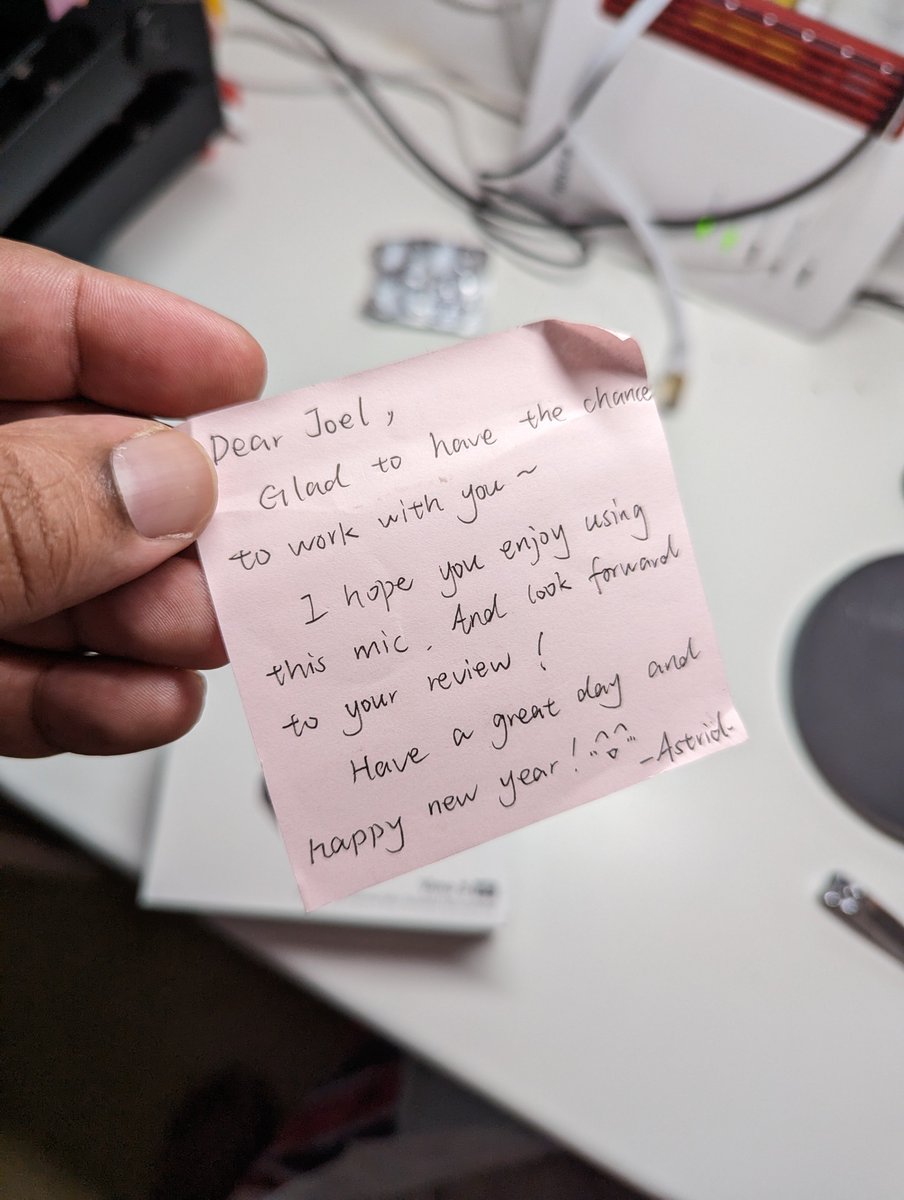 Dear Joel,
Glad to have the chance
to work with you ~
I hope you enjoy using
this mic. And look forward
to your review!
Have a great day and
happy new year! -Astrid-